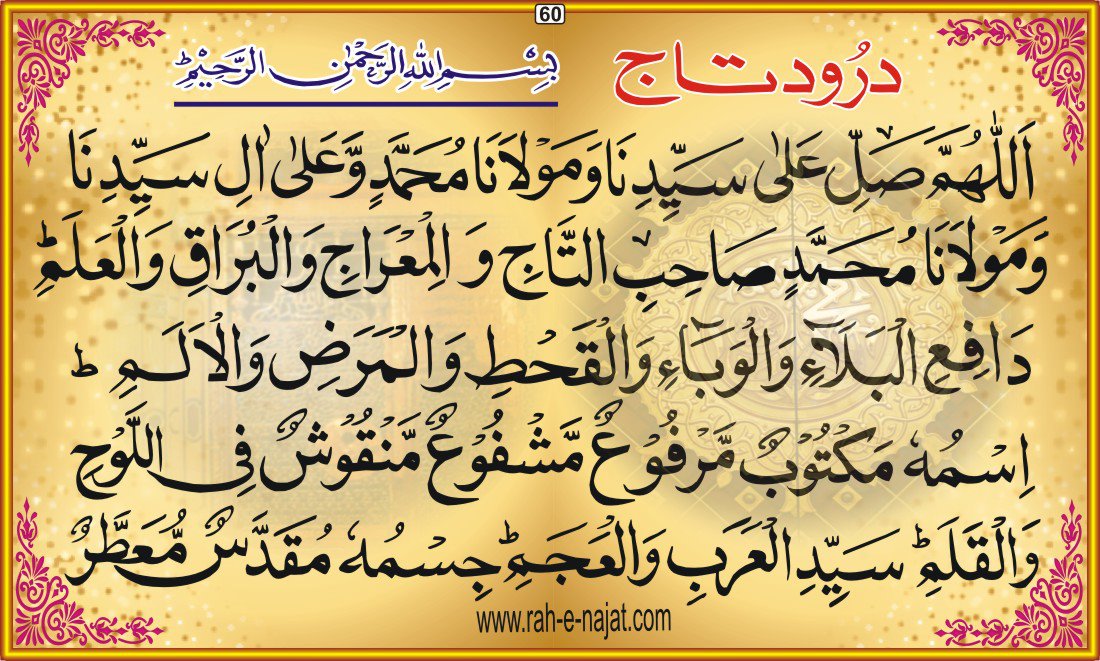 60
درود تاج
بِسْمِ اللهِ الرَّحْمٰنِ الرَّحِيْمِ ؕ
اَللّٰهُمَّ صَلِّ عَلٰى سَيِّدِنَا وَمَوْلَانَا مُحَمَّدٍ وَّعَلٰى اٰلِ سَيِّدِنَا
وَمَوْلَانَا مُحَمَّدٍ صَاحِبِ التَّاجِ وَ الْمِعْرَاجِ وَالْبُرَاقِ وَالْعَلَمِ ؕ
دَافِعِ الْبَلَآءِ وَالْوَبَآءِ وَالْقَحْطِ وَالْمَرَضِ وَالْاَلَمِ ؕ
اِسْمُهٗ مَكْتُوْبٌ مَّرْفُوْعٌ مَّشْفُوْعٌ مَّنْقُوْشٌ فِى اللَّوْحِ
وَالْقَلَمِ ؕ سَيِّدِ الْعَرَبِ وَالْعَجَمِ ؕ جِسْمُهٗ مُقَدَّسٌ مُّعَطَّرٌ
www.rah-e-najat.com